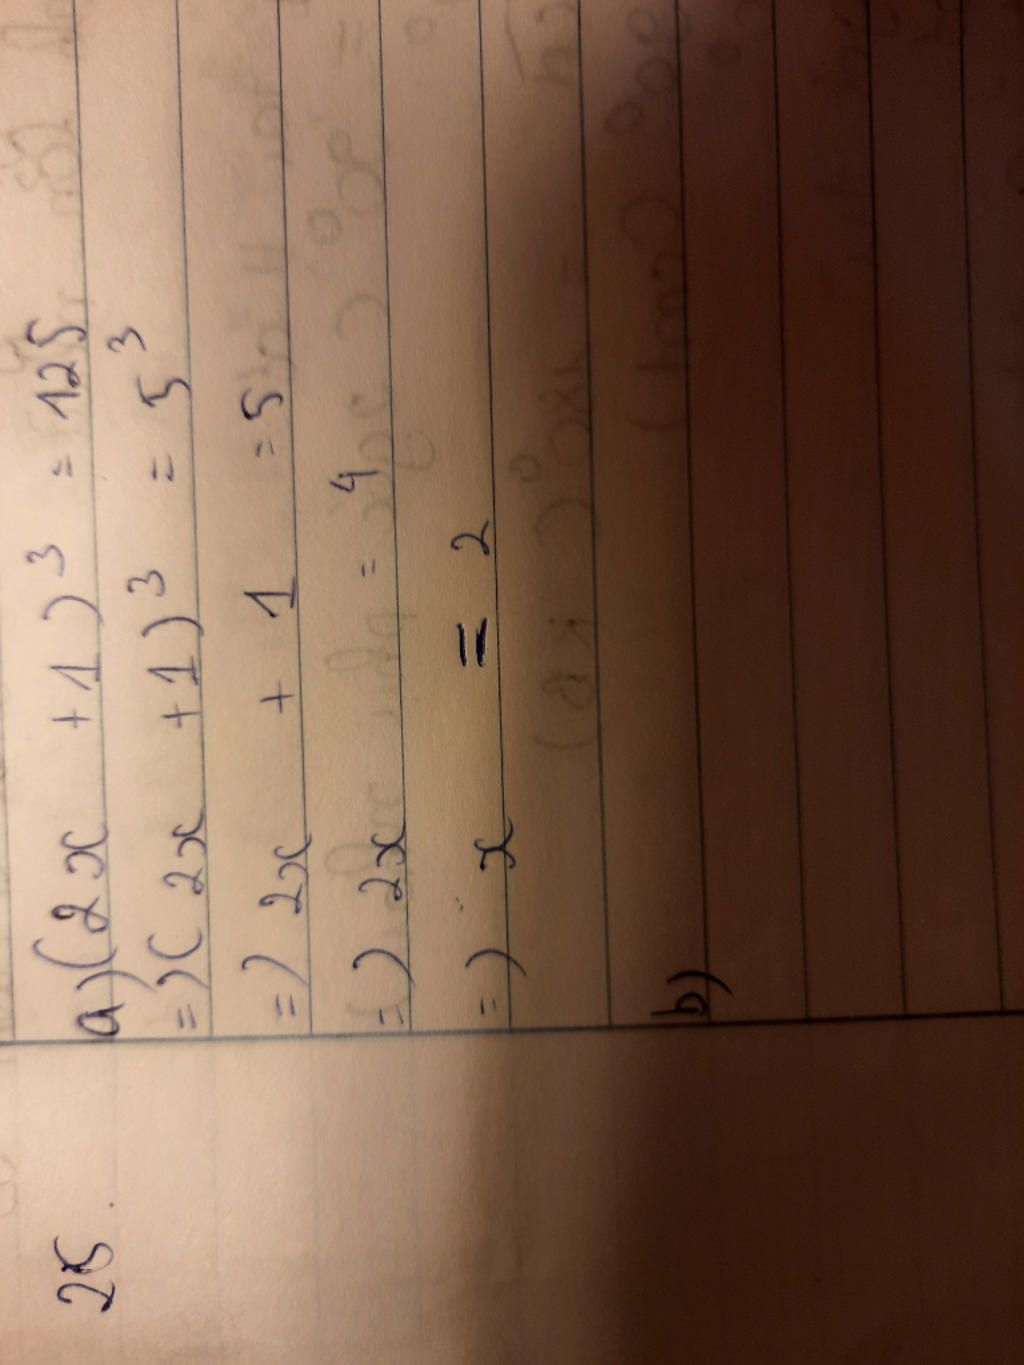 25. a) (2x + 1)³ = 125
=) (2x + 1)³ = 5³
=) 2x + 1 = 5
=) 2x = 4
=) x = 2
b)